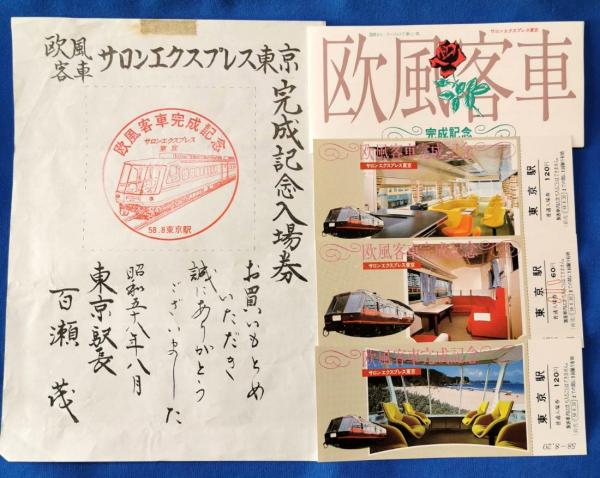 欧風
客車
サロンエクスプレス東京
完成記念入場券
欧風客車完成記念
サロンエクスプレス
東京
58.8東京駅
お買いもとめ
いただき
誠にありがとう
ございました
昭和五十八年八月
東京駅長
百瀬 茂
サロンエクスプレス東京
欧風客車
完成記念
欧風客車完成記念
サロンエクスプレス東京
東京駅
普通入場券 120円
欧風客車完成記念
サロンエクスプレス東京
東京駅
普通入場券 60円
欧風客車完成記念
サロンエクスプレス東京
東京駅
普通入場券 120円